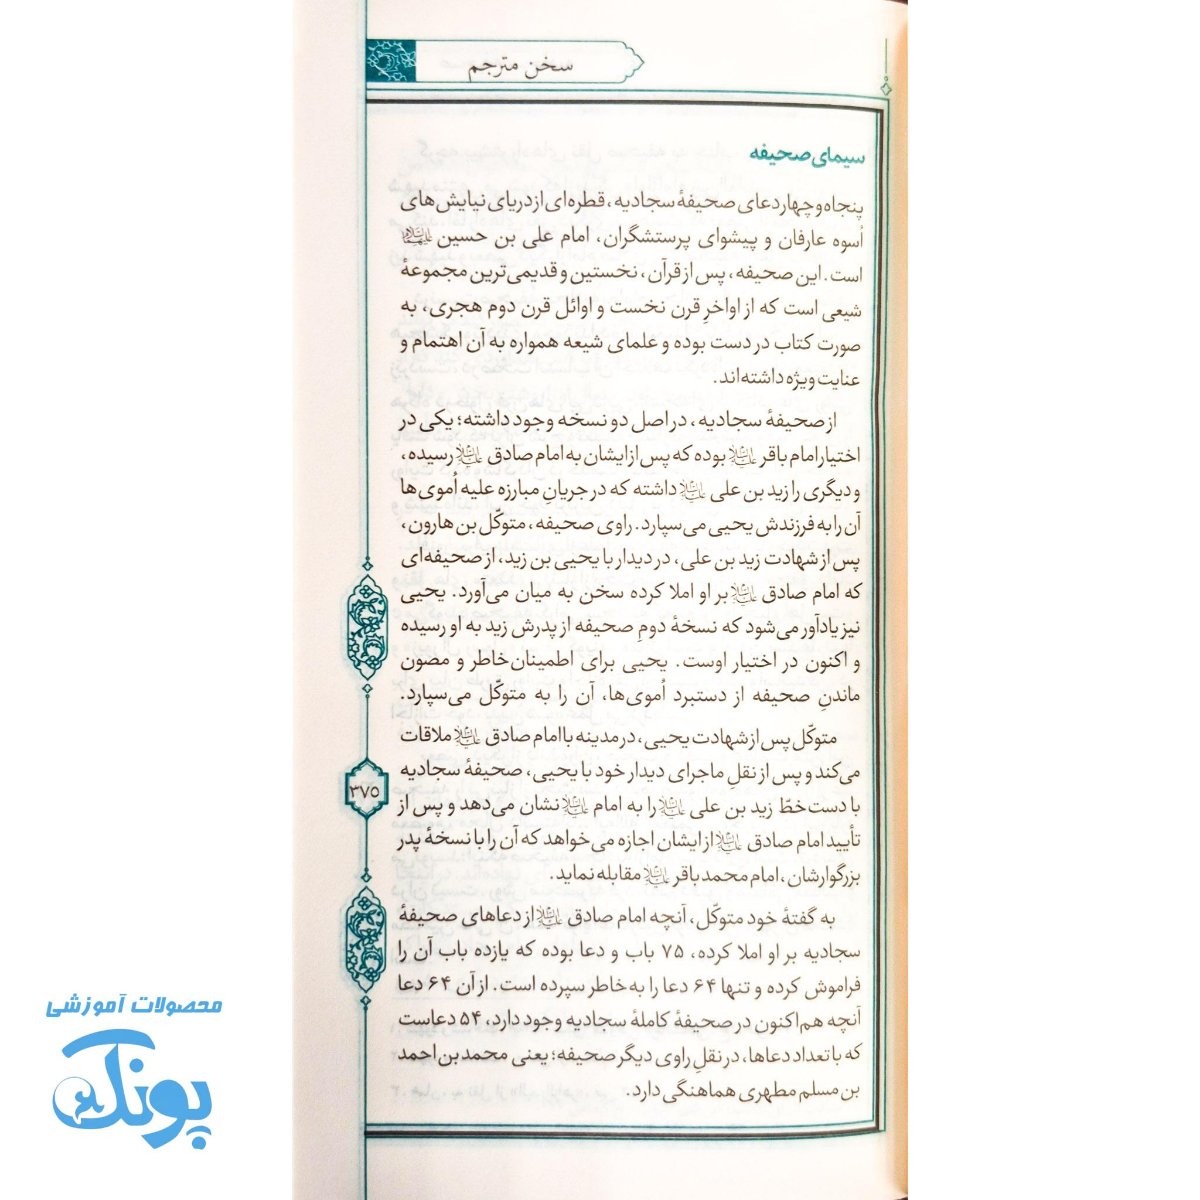 سخن مترجم
سیمای صحیفه
پنجاه و چهار دعای صحیفهٔ سجادیه، قطره‌ای از دریای نیایش‌های
اُسوه عارفان و پیشوای پرستشگران، امام علی بن حسین علیهما السلام
است. این صحیفه، پس از قرآن، نخستین و قدیمی‌ترین مجموعهٔ
شیعی است که از اواخرِ قرن نخست و اوائل قرن دوم هجری، به
صورت کتاب در دست بوده و علمای شیعه همواره به آن اهتمام و
عنایت ویژه داشته‌اند.
از صحیفهٔ سجادیه، در اصل دو نسخه وجود داشته؛ یکی در
اختیار امام باقر علیه السلام بوده که پس از ایشان به امام صادق علیه السلام رسیده،
و دیگری را زید بن علی علیه السلام داشته که در جریانِ مبارزه علیه اُموی‌ها
آن را به فرزندش یحیی می‌سپارد. راوی صحیفه، متوکّل بن هارون،
پس از شهادت زید بن علی، در دیدار با یحیی بن زید، از صحیفه‌ای
که امام صادق علیه السلام بر او املا کرده سخن به میان می‌آورد. یحیی
نیز یادآور می‌شود که نسخهٔ دومِ صحیفه از پدرش زید به او رسیده
و اکنون در اختیار اوست. یحیی برای اطمینان‌خاطر و مصون
ماندنِ صحیفه از دستبرد اُموی‌ها، آن را به متوکّل می‌سپارد.
متوکّل پس از شهادت یحیی، در مدینه با امام صادق علیه السلام ملاقات
می‌کند و پس از نقلِ ماجرای دیدار خود با یحیی، صحیفهٔ سجادیه
با دست‌خطّ زید بن علی علیه السلام را به امام علیه السلام نشان می‌دهد و پس از
تأیید امام صادق علیه السلام از ایشان اجازه می‌خواهد که آن را با نسخهٔ پدر
بزرگوارشان، امام محمد باقر علیه السلام مقابله نماید.
۳۷۵
به گفتهٔ خود متوکّل، آنچه امام صادق علیه السلام از دعاهای صحیفهٔ
سجادیه بر او املا کرده، ۷۵ باب و دعا بوده که یازده باب آن را
فراموش کرده و تنها ۶۴ دعا را به خاطر سپرده است. از آن ۶۴ دعا
آنچه هم‌اکنون در صحیفهٔ کاملهٔ سجادیه وجود دارد، ۵۴ دعاست
که با تعداد دعاها، در نقلِ راوی دیگر صحیفه؛ یعنی محمد بن احمد
بن مسلم مطهری هماهنگی دارد.
محصولات آموزشی
پونک